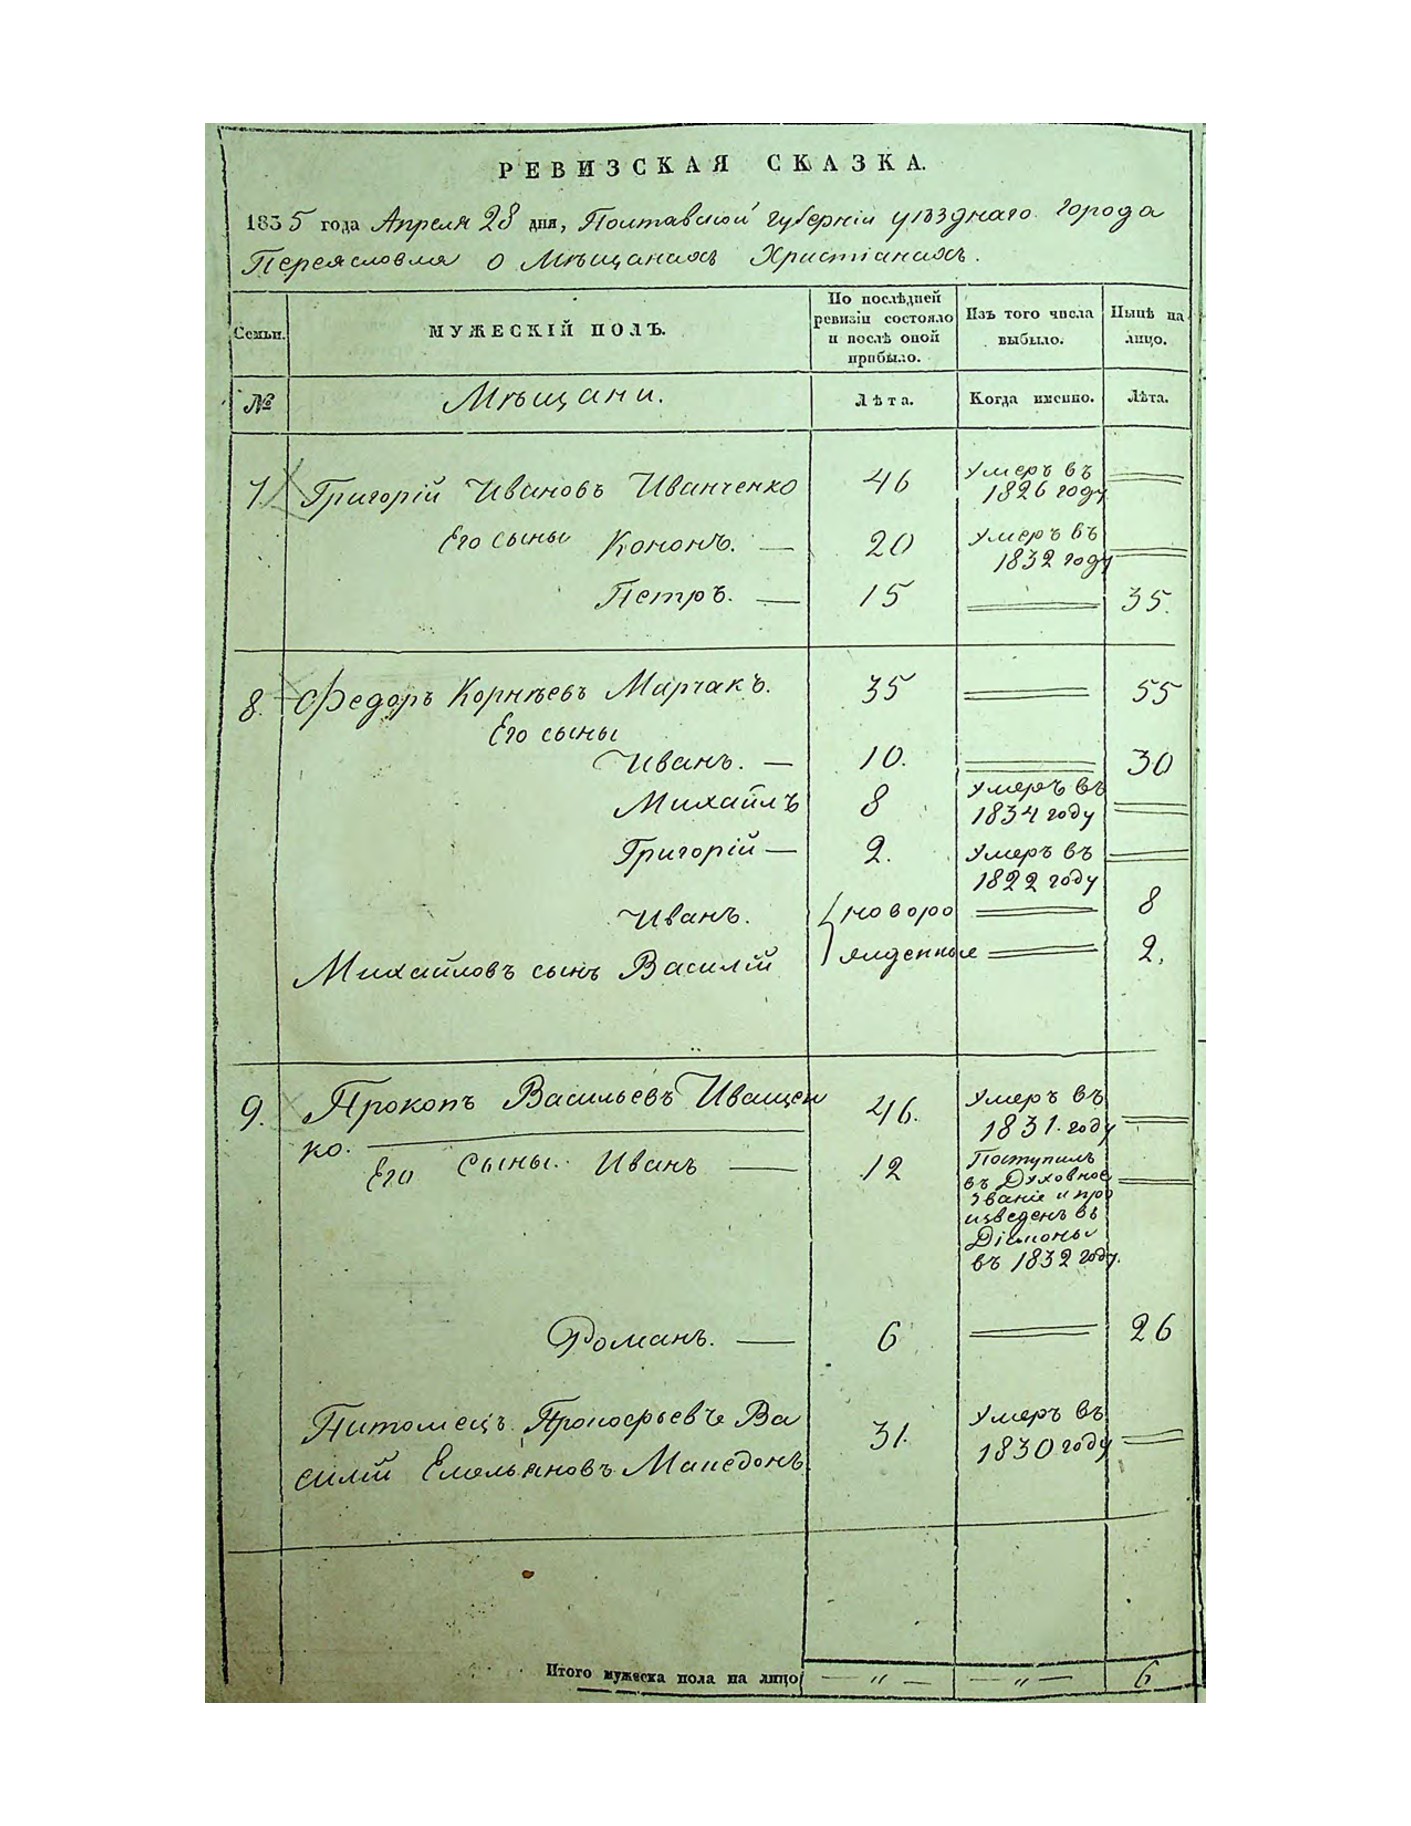 РЕВИЗСКАЯ СКАЗКА.
1835 года Апреля 28 дня, Полтавской губерніи уѣзднаго города
Переясловля о Мѣщанахъ Христіанахъ.
Семьи. МУЖЕСКІЙ ПОЛЪ. По послѣдней ревизіи состояло и послѣ оной прибыло. Изъ того числа выбыло. Нынѣ на лицо.
№ Мѣщани. Лѣта. Когда именно. Лѣта.
7. Григорій Ивановъ Иванченко 46 Умеръ въ
1826 году
Его сыны Кононъ. — 20 Умеръ въ
1832 году
Петръ. — 15 35.
8. Федоръ Корнѣевъ Марчакъ. 35 55
Его сыны
Иванъ. — 10. 30
Михайлъ 8 Умеръ въ
1834 году
Григорій — 2. Умеръ въ
1822 году
Иванъ. новоро 8
Михайловъ сынъ Василій жденные 2.
9. Прокопъ Васильевъ Иващен 46. Умеръ въ
ко. 1831. году
Его Сыны. Иванъ — 12 Поступилъ
въ Духовное
званіе и про
изведенъ въ
Діяконы
въ 1832 году.
Романъ. — 6 26
Питомецъ Прокофьевъ Ва 31. Умеръ въ
силій Емельяновъ Македонъ. 1830 году
Итого мужеска пола на лицо — " — — " — 6